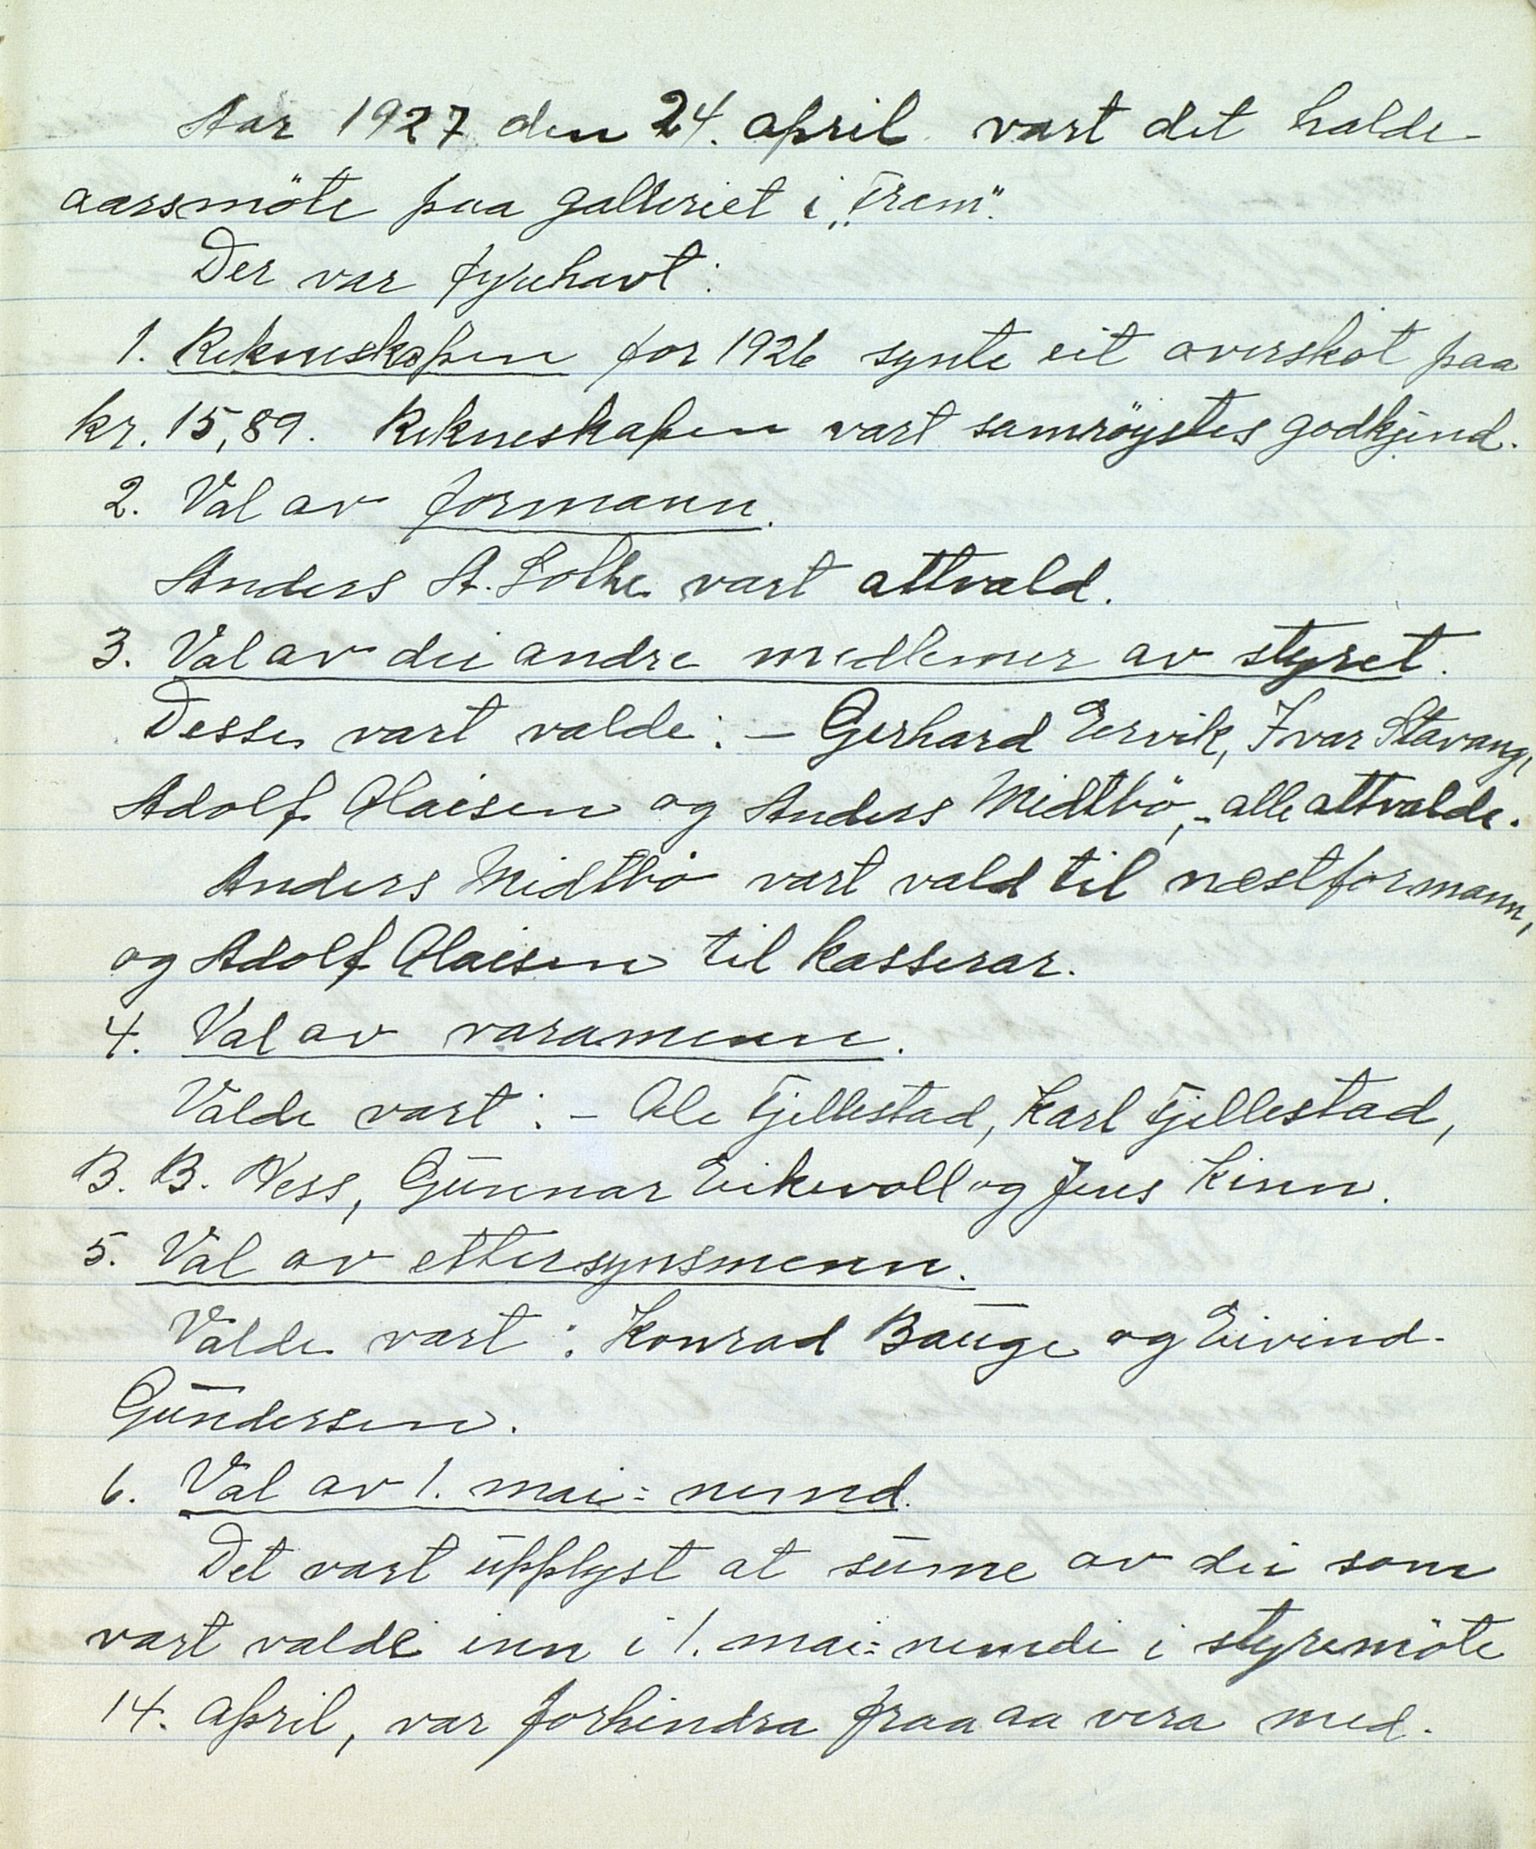 Aar 1927 den 24. april vart det halde
aarsmöte paa galleriet i „Fram".
Der var fyrehavt:
1. Rekneskapen for 1926 synte eit overskot paa
kr. 15,89. Rekneskapen vart samröystes godkjend.
2. Val av formann.
Anders A. Solhe vart attvald.
3. Val av dei andre medlemer av styret.
Desse vart valde: – Gerhard Eervik, Ivar Stavang,
Adolf Olaisen og Anders Midtbö, – alle attvalde.
Anders Midtbö vart vald til næstformann,
og Adolf Olaisen til kasserar.
4. Val av varamenn.
Valde vart: – Ole Fjellestad, Karl Fjellestad,
B. B. Ness, Gunnar Eikevoll og Jens Kinn.
5. Val av ettersynsmenn.
Valde vart: Konrad Bauge og Eivind
Gundersen.
6. Val av 1. mai-nemnd.
Det vart upplyst at sume av dei som
vart valde inn i 1. mai-nemdi i styremöte
14. april, var forhindra fraa aa vera med.